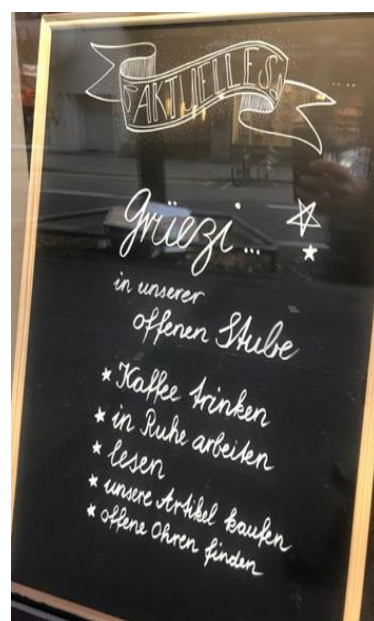 AKTUELLES
Grüezi...
in unserer
offenen Stube
* Kaffee trinken
* in Ruhe arbeiten
* lesen
* unsere Artikel kaufen
* offene Ohren finden